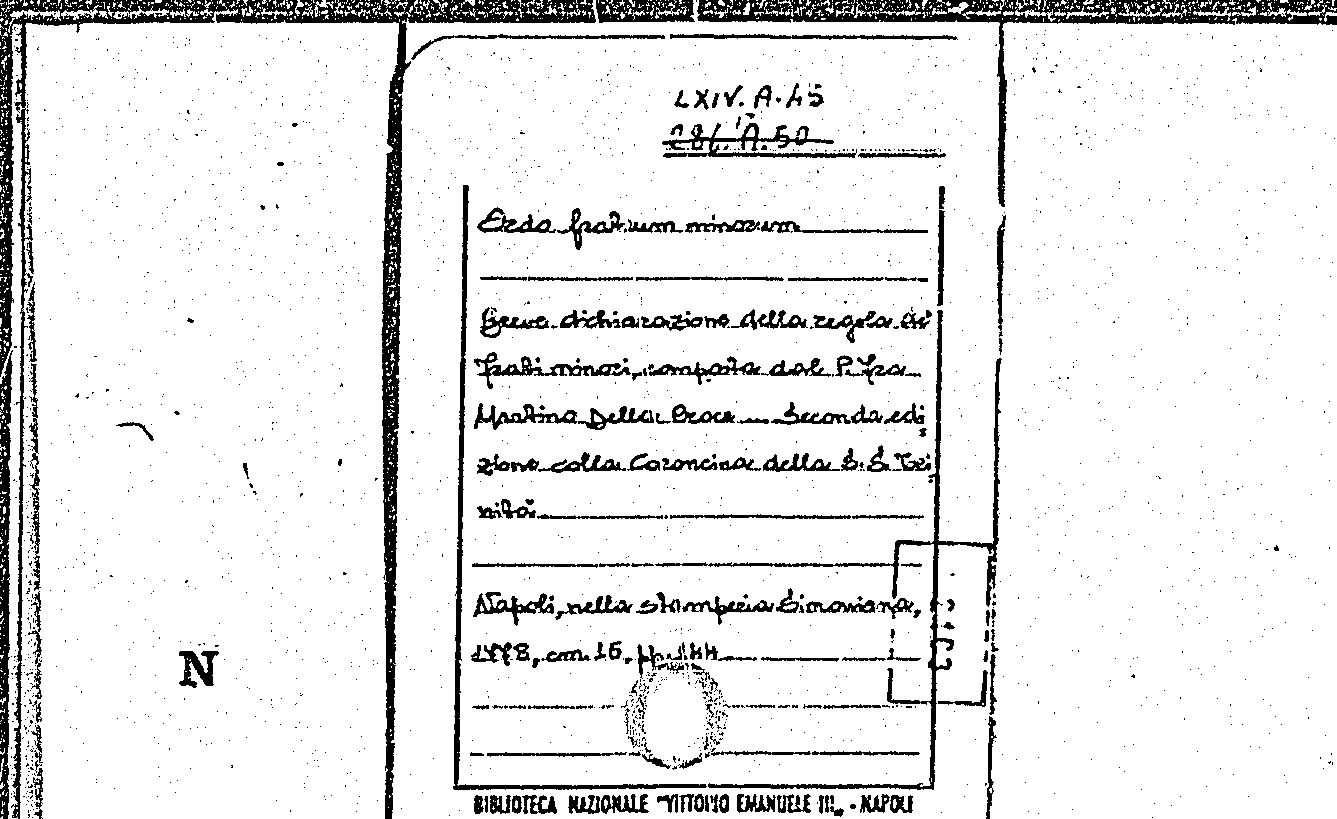 LXIV. A. 45
Ordo fratrum minorum
Breve dichiarazione della regola de'
frati minori, composta dal P. Fra
Martino Della Croce ... Seconda edi
zione colla Coroncina della S.S. Tri
nità
Napoli, nella stamperia Simoniana,
1778, cm. 16, pp. 144
N
BIBLIOTECA NAZIONALE "VITTORIO EMANUELE III„ - NAPOLI